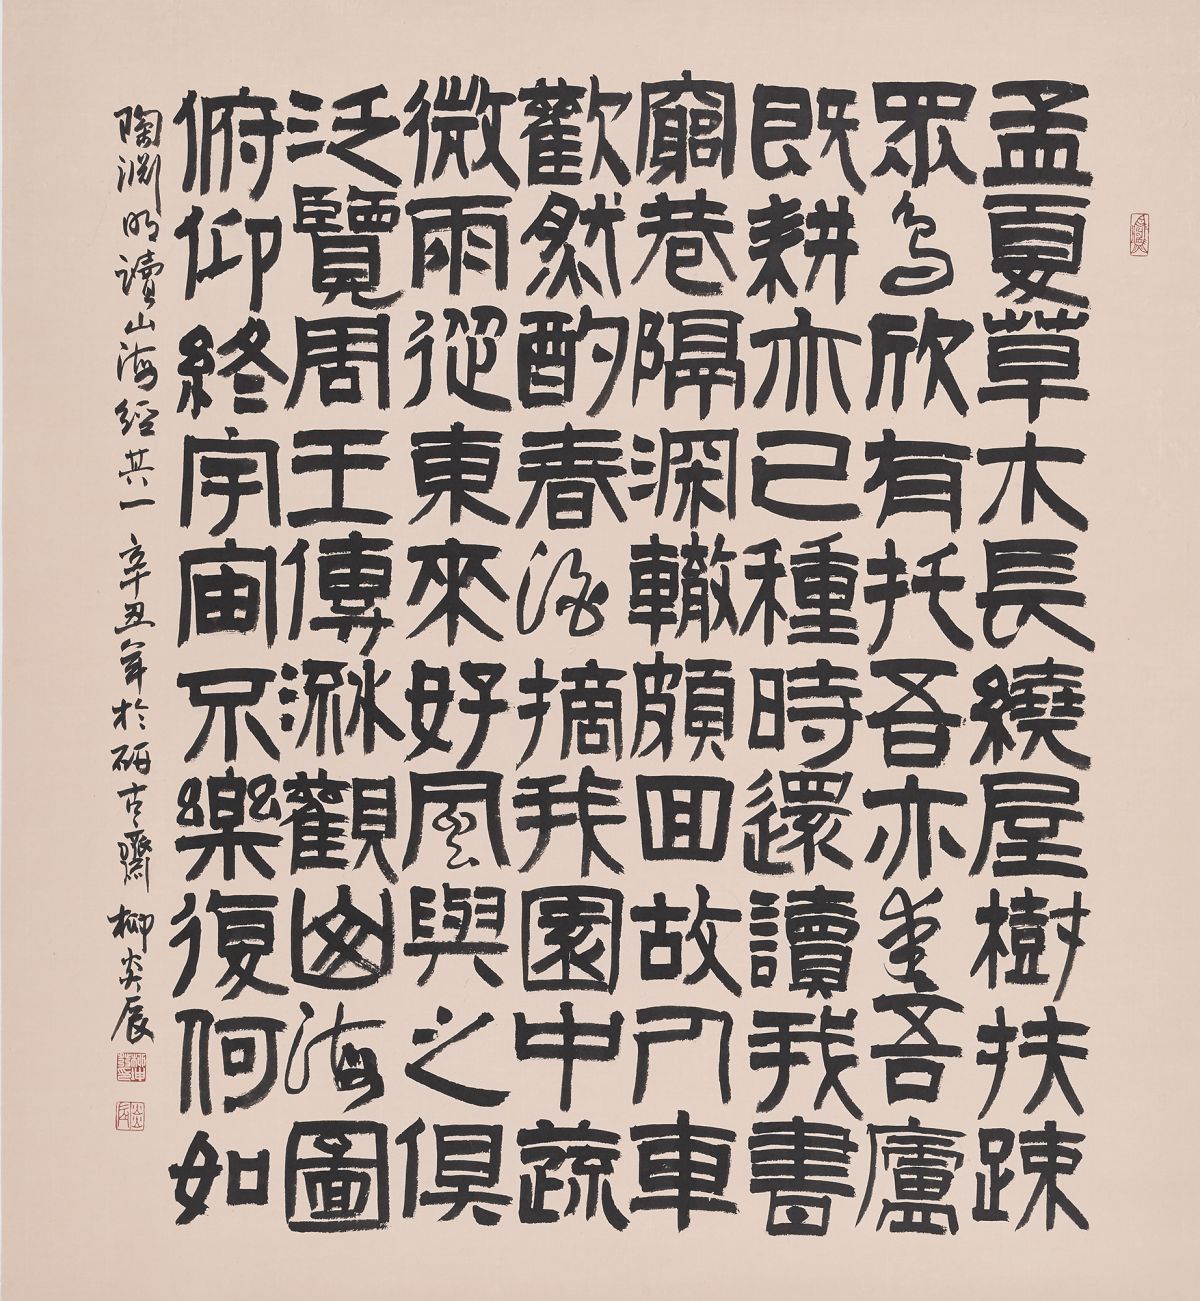 孟夏草木長繞屋樹扶踈
眾鳥欣有托吾亦愛吾廬
既耕亦已種時還讀我書
窮巷隔深轍頗回故人車
歡然酌春酒摘我園中蔬
微雨從東來好風與之俱
泛覽周王傳流觀山海圖
俯仰終宇宙不樂復何如
陶淵明讀山海經其一 辛丑年於研古齋 柳炎辰